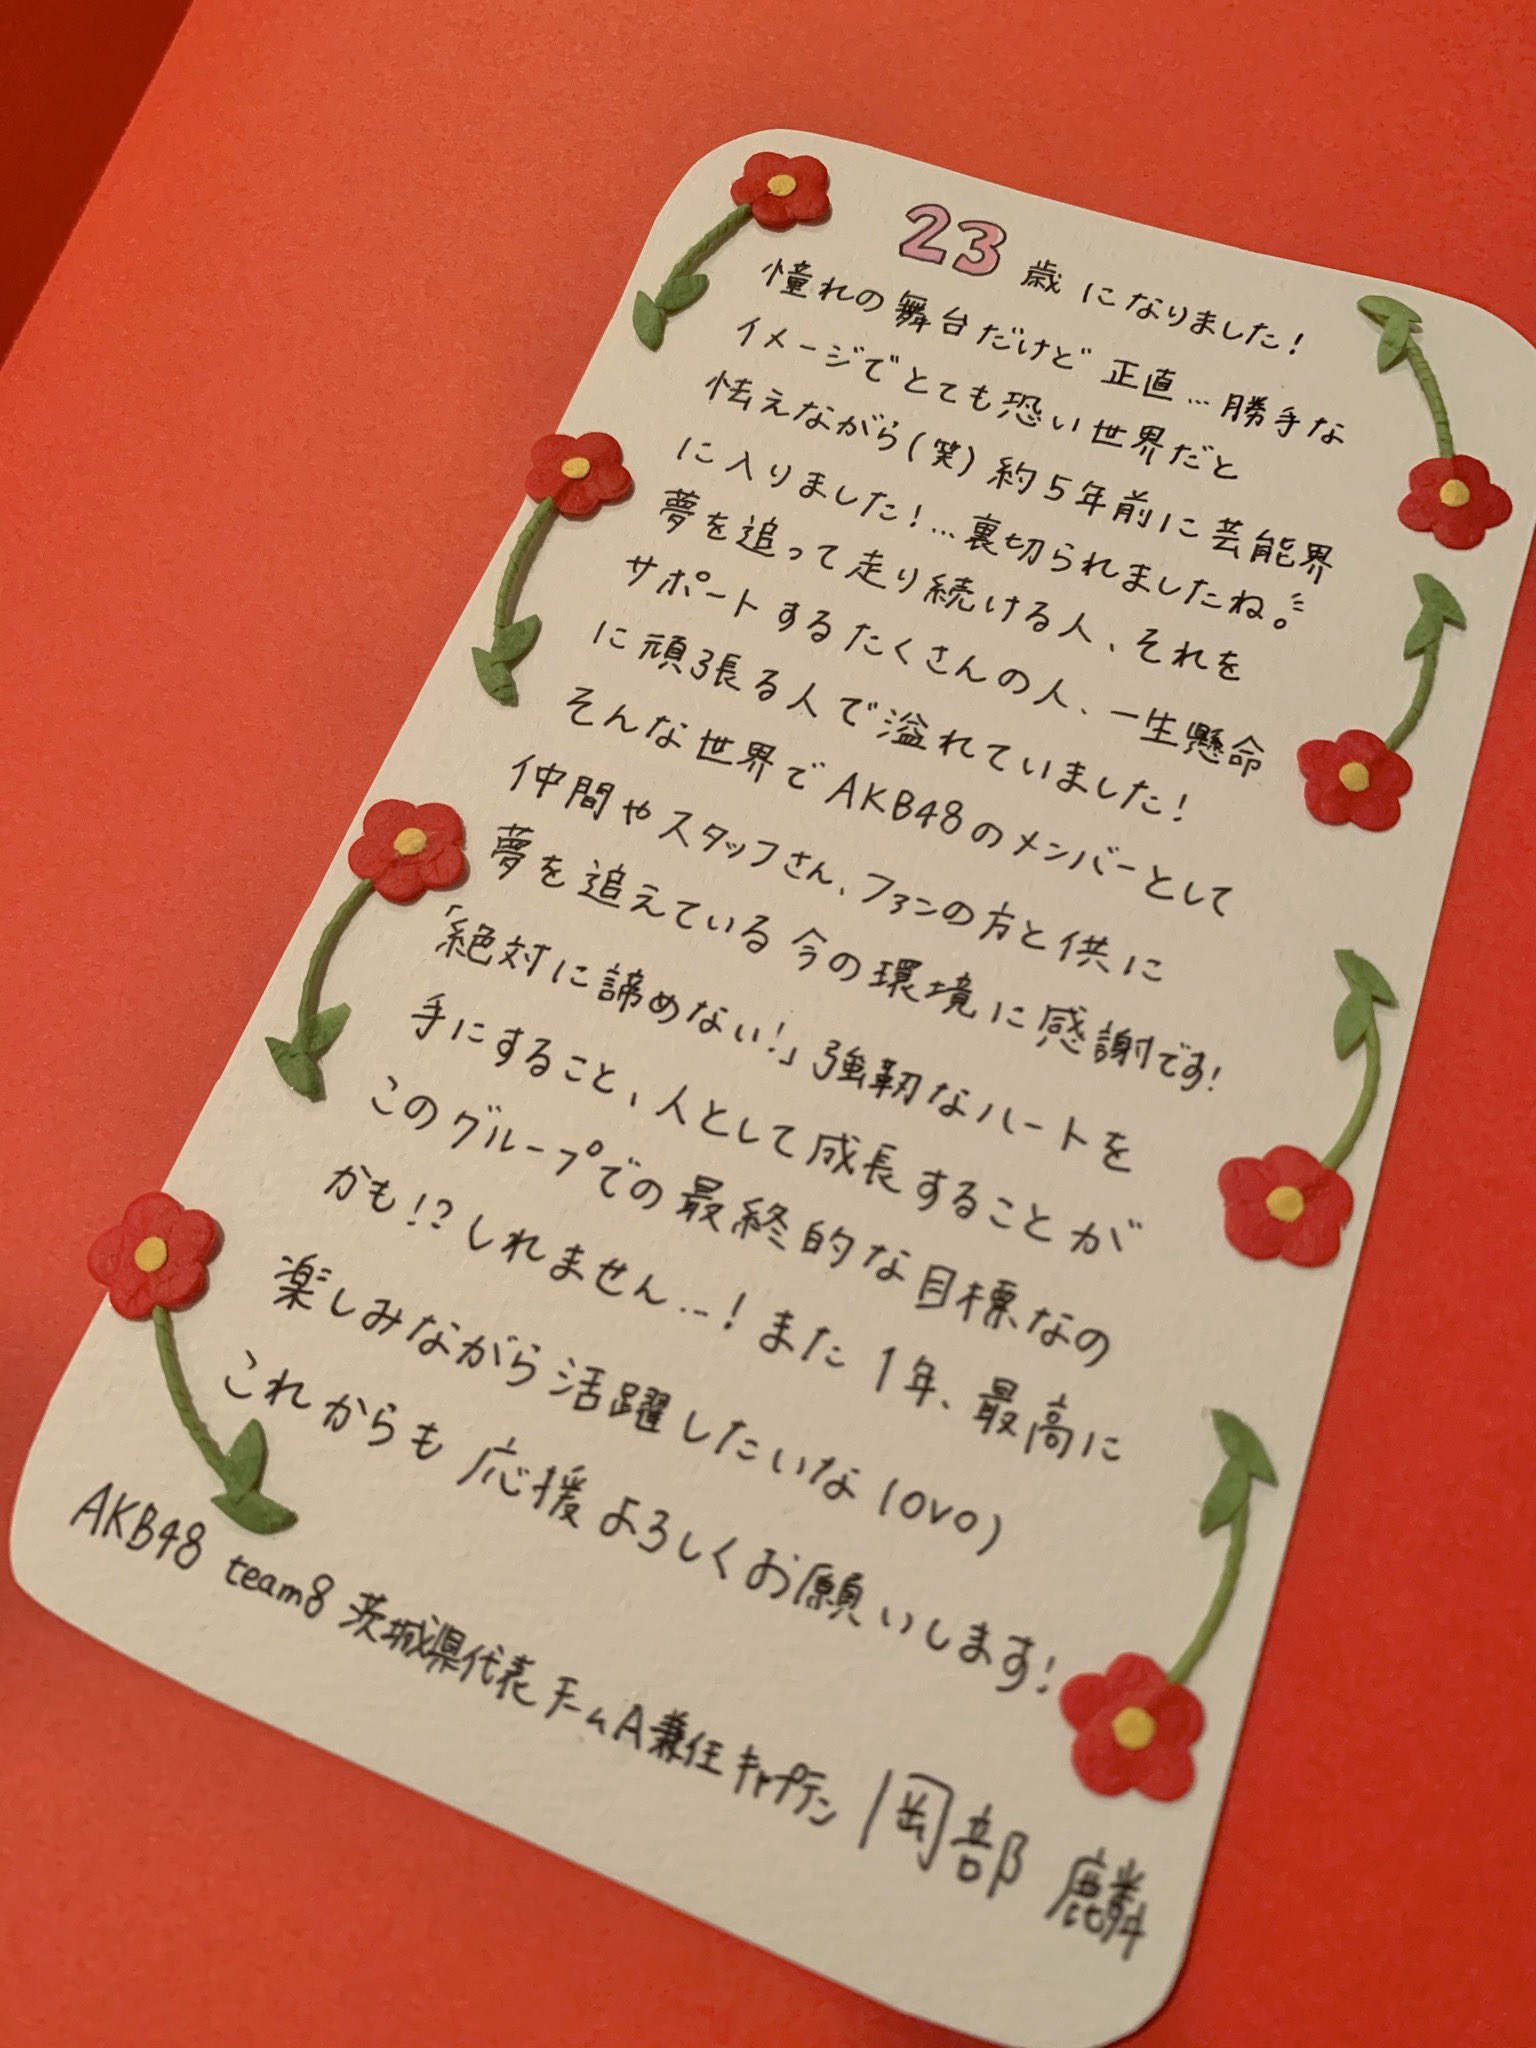 23歳になりました!
憧れの舞台だけど正直…勝手な
イメージでとても恐い世界だと
怯えながら(笑)約5年前に芸能界
に入りました!…裏切られましたね。
夢を追って走り続ける人、それを
サポートするたくさんの人、一生懸命
に頑張る人で溢れていました!
そんな世界でAKB48のメンバーとして
仲間やスタッフさん、ファンの方と供に
夢を追えている今の環境に感謝です!
「絶対に諦めない!」強靭なハートを
手にすること、人として成長することが
このグループでの最終的な目標なの
かも!?しれません…!また1年、最高に
楽しみながら活躍したいな(ovo)
これからも応援よろしくお願いします!
AKB48 team8 茨城県代表 チームA兼任 キャプテン 岡部 麟